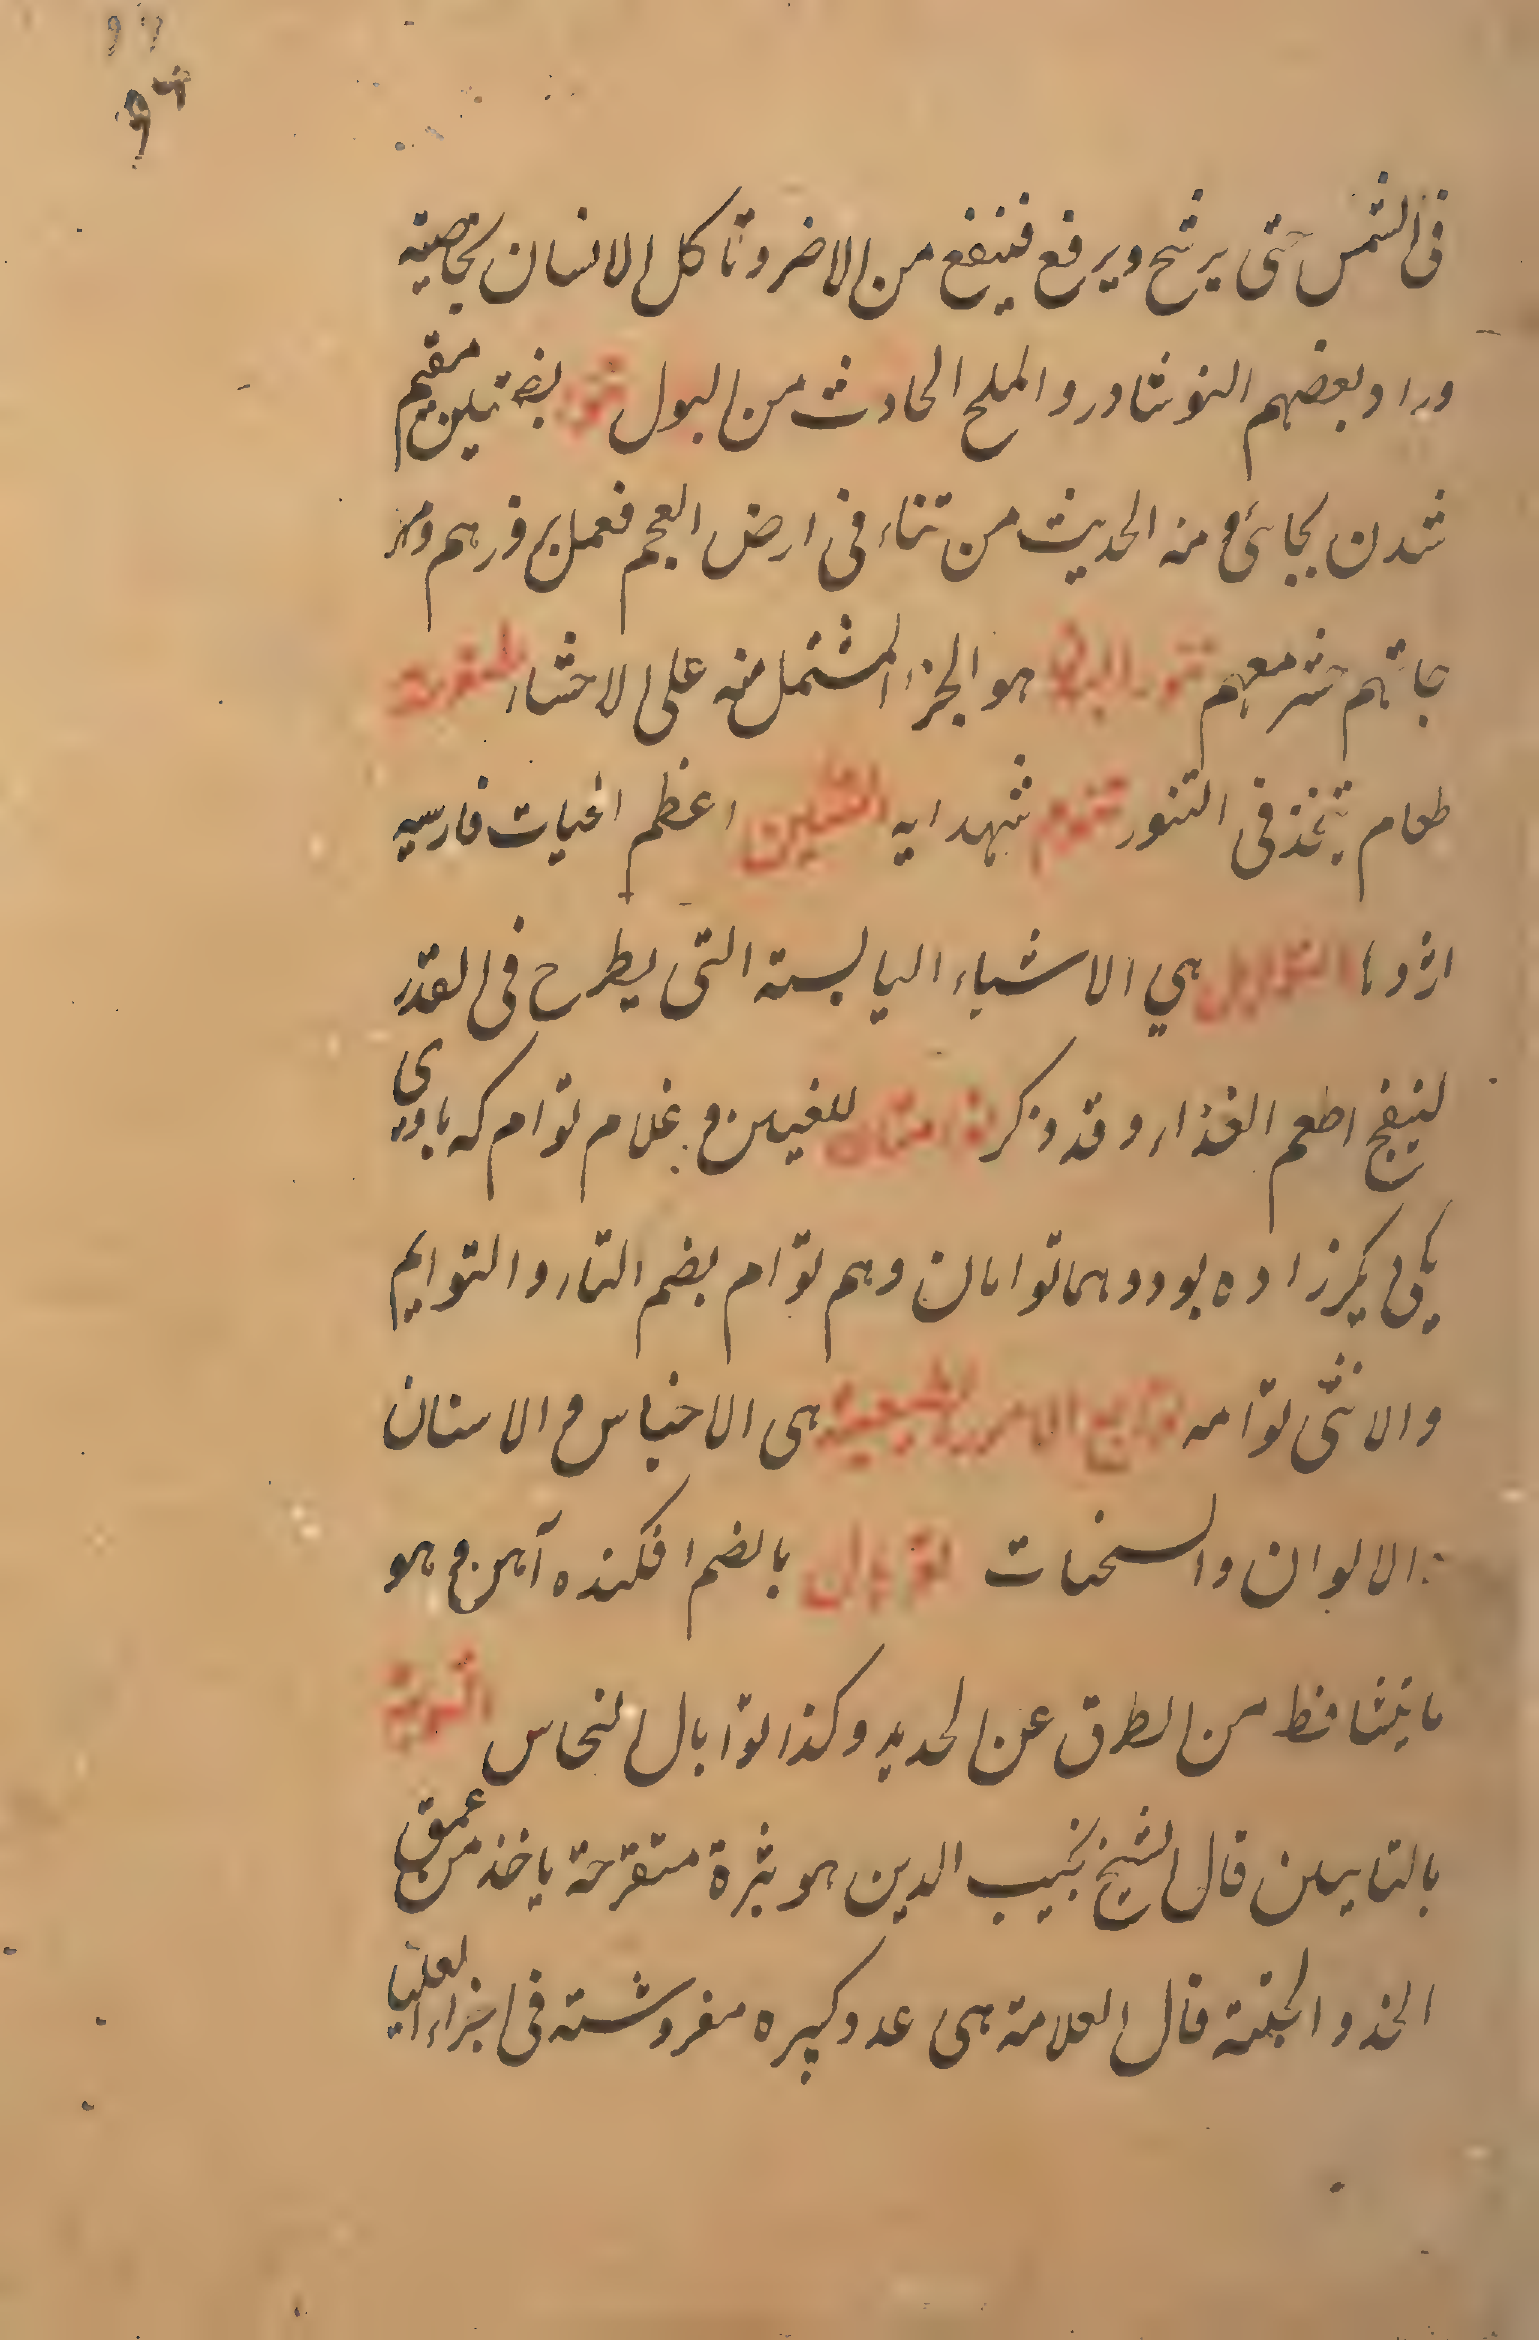 فی الشمس حتی یرشح ویرفع فینفع من الاضر وتاکل الاسنان بخاصیته
وراد بعضهم النوشادر والملح الحادث من البول تنو بضمتین مقیم
شدن بجائی و منه الحدیث من تناء فی ارض العجم فعمل نورهم ومهر
جانهم حشر معهم تنور البدن هو الجزء المشتمل منه علی الاحشاء
طعام یتخذ فی التنور تنوم شهدایه التنین اعظم الحیات فارسیه
اژدها التوابل هی الاشیاء الیابسته التی یطرح فی القدر
لینضج اطعم الغذاء وقد ذکر للغین و غلام توأم که با وی
یکی دیگر زاده بود وهما توامان وهم توأم بضم التاء والتوایم
والانثی توامه توابع الامور الطبیعیة هی الاجناس والاسنان
والالوان والسخنات توبال بالضم افکنده آهن و هو
ما یتثاقط من الطرق عن الحدید وکذا توابال النحاس التوتة
بالتایین قال الشیخ نجیب الدین هو بثرة متقرحة یاخذ من عمق
الخد والجنته قال العلامة هی غدد کبیره مفروشته فی اجزاء العلیا